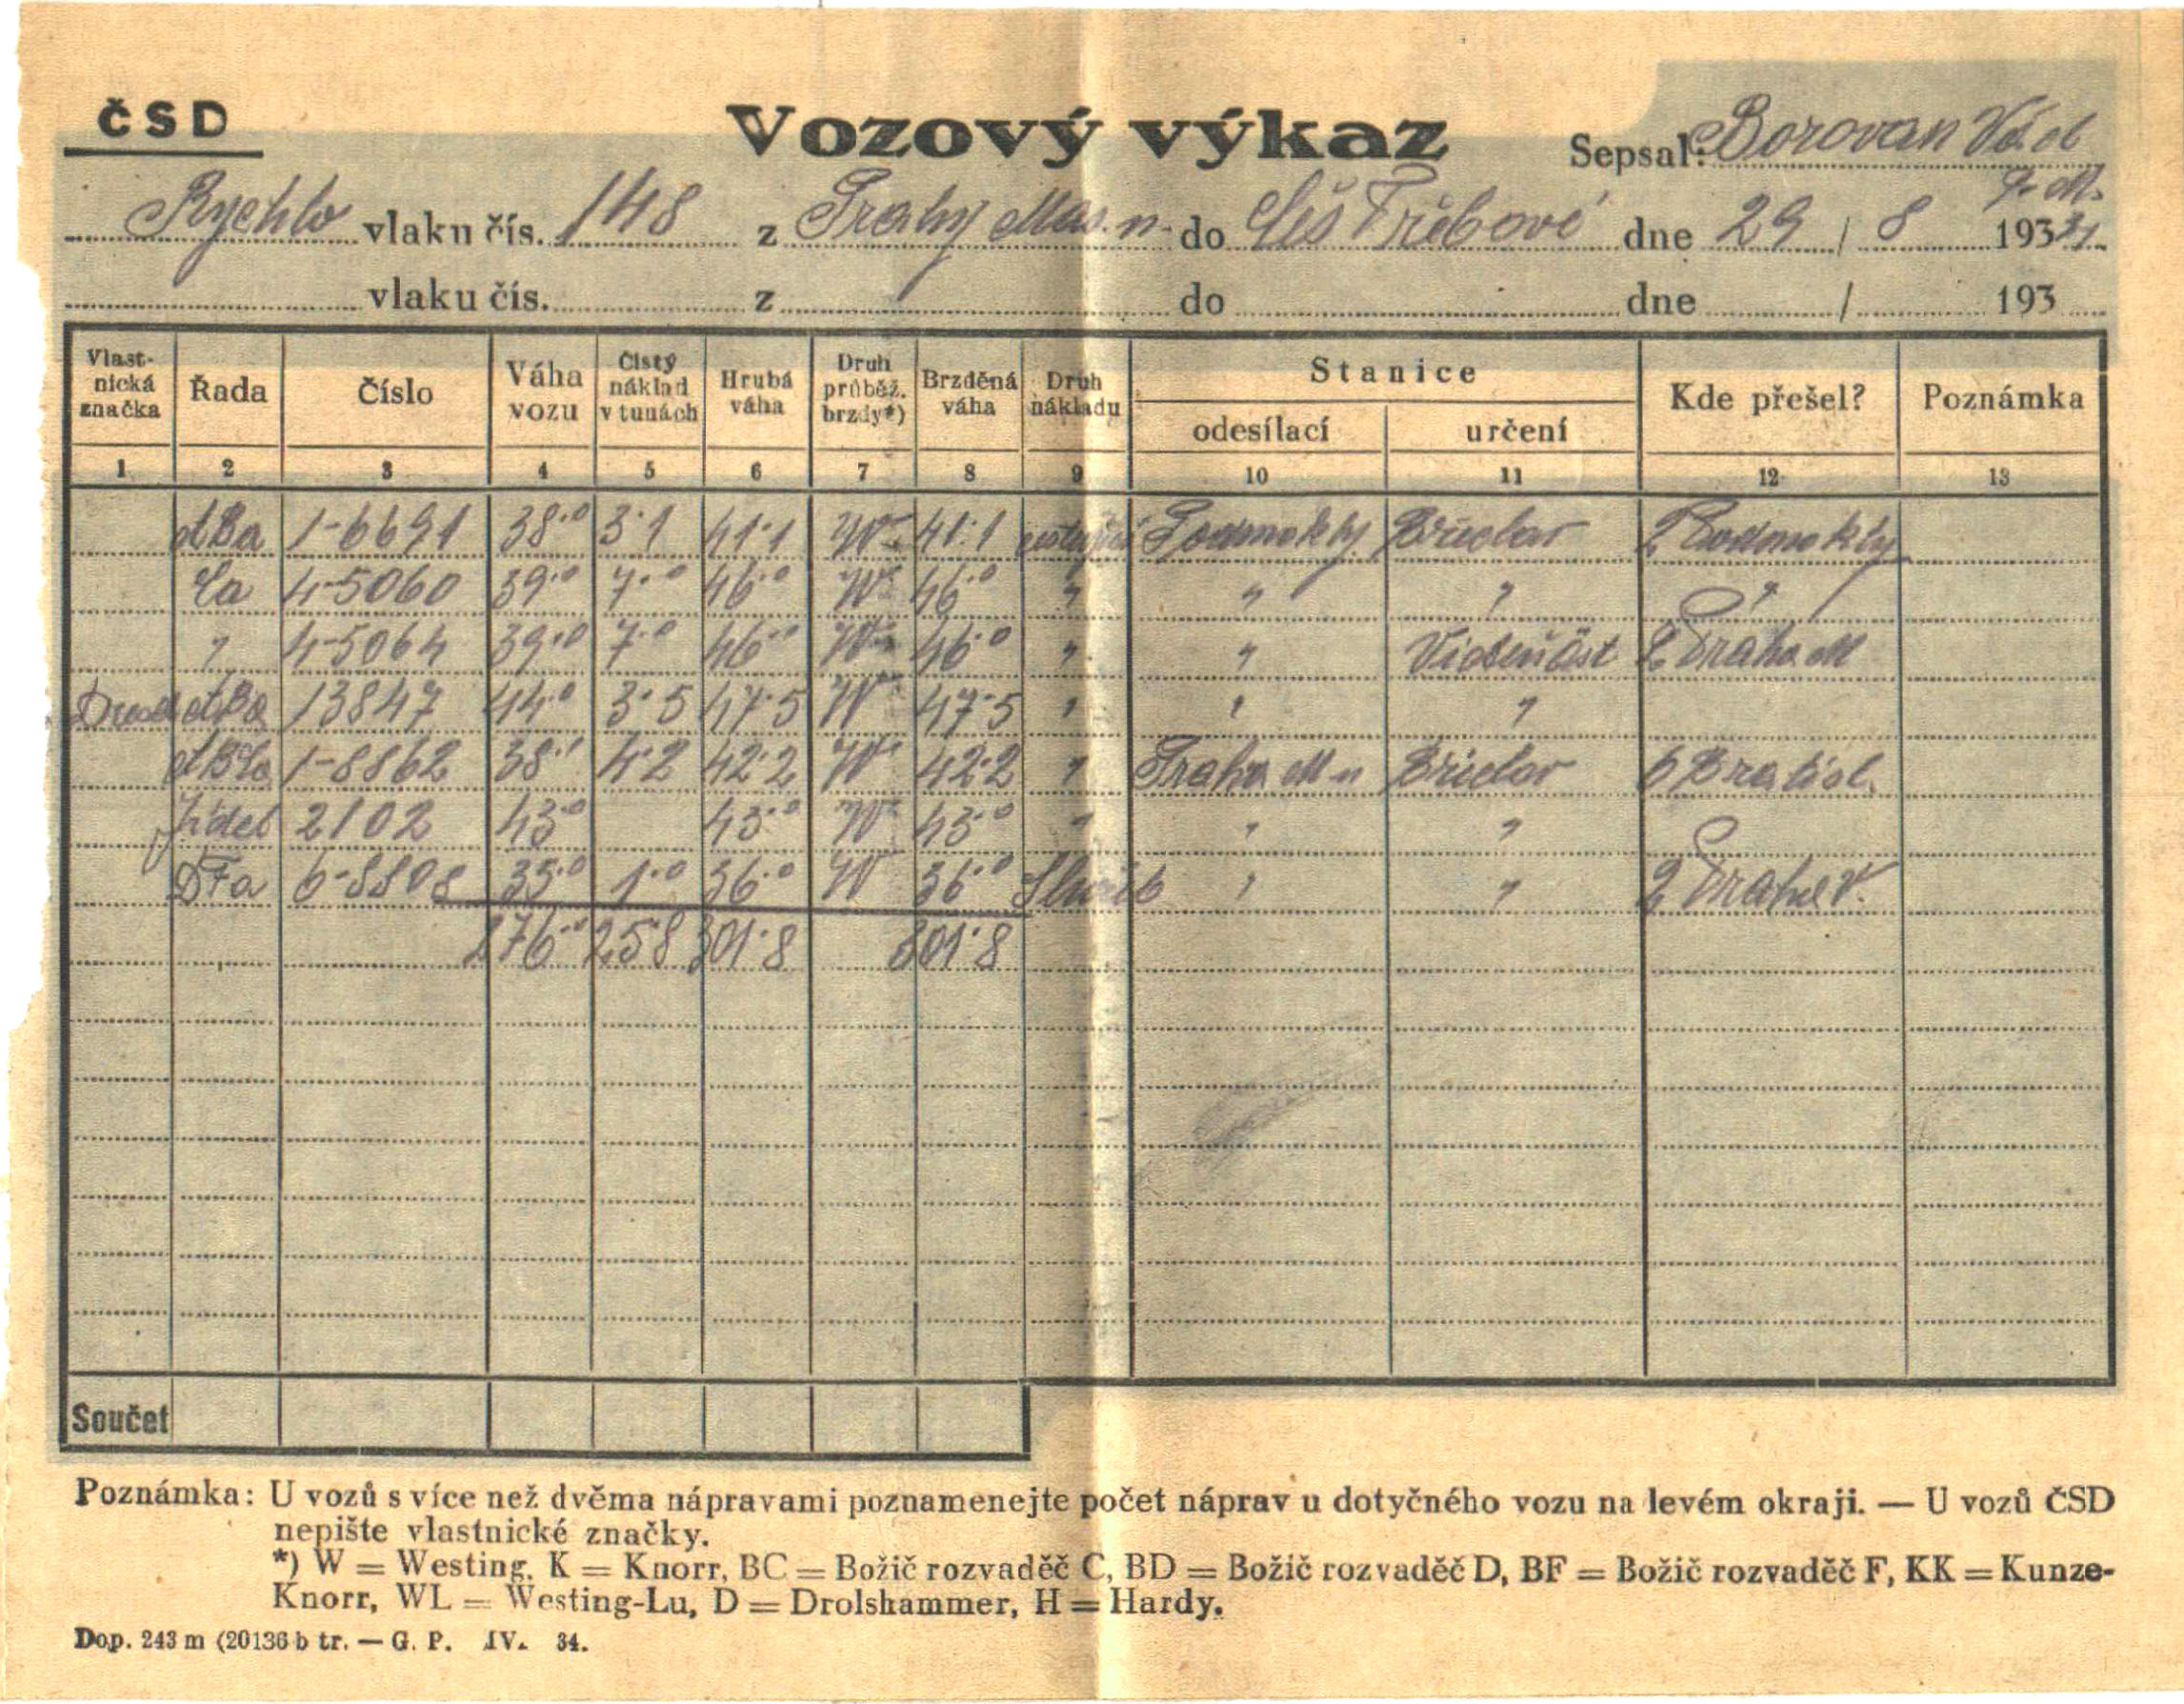 ČSD
Vozový výkaz
Sepsal: Borovan
Rychlo vlaku čís. 148 z Prahy Mas. n. do Čes Třebové dne 29 / 8 193
vlaku čís. z do dne / 193
Vlastnická značka Řada Číslo Váha vozu Čistý náklad v tunách Hrubá váha Druh průběž. brzdy*) Brzděná váha Druh nákladu Stanice odesílací určení Kde přešel? Poznámka
1 2 3 4 5 6 7 8 9 10 11 12 13
ABa 1-6691 38·0 3·1 41·1 W 41·1 Podmokly Břeclav Podmokly
Ca 4-5060 39·0 7·0 46·0 W 46·0 " " " "
" 4-5064 39·0 7·0 46·0 W 46·0 " " Praha M
13847 44·0 3·5 47·5 W 47·5 " " "
1-8862 38· 4·2 42·2 W 42·2 " Praha M n Břeclav Bratisl.
Jídel 2102 43·0 43·0 W 43·0 " " "
DFa 35·0 1·0 36·0 W 36·0 " " 2 Praha
276·0 25·8 301·8 301·8
Součet
Poznámka: U vozů s více než dvěma nápravami poznamenejte počet náprav u dotyčného vozu na levém okraji. — U vozů ČSD
nepište vlastnické značky.
*) W = Westing, K = Knorr, BC = Božič rozvaděč C, BD = Božič rozvaděč D, BF = Božič rozvaděč F, KK = Kunze-
Knorr, WL = Westing-Lu, D = Drolshammer, H = Hardy.
Dop. 243 m (20136 b tr. — G. P. IV. 34.